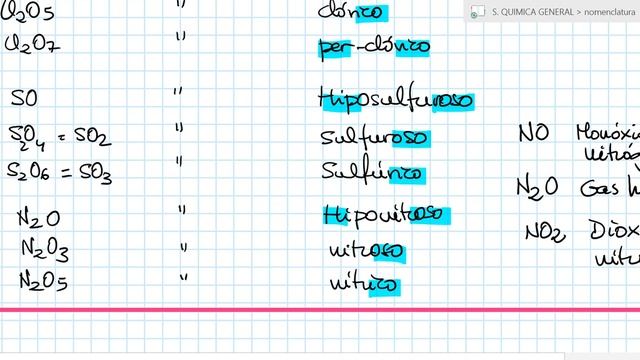 Cl2O5 " clórico
Cl2O7 " per-clórico
SO " Hiposulfuroso
S2O4 = SO2 " sulfuroso
S2O6 = SO3 " Sulfúrico
N2O " Hiponitroso
N2O3 " nitroso
N2O5 " nítrico
S. QUIMICA GENERAL > nomenclatura
NO
N2O Gas
NO2